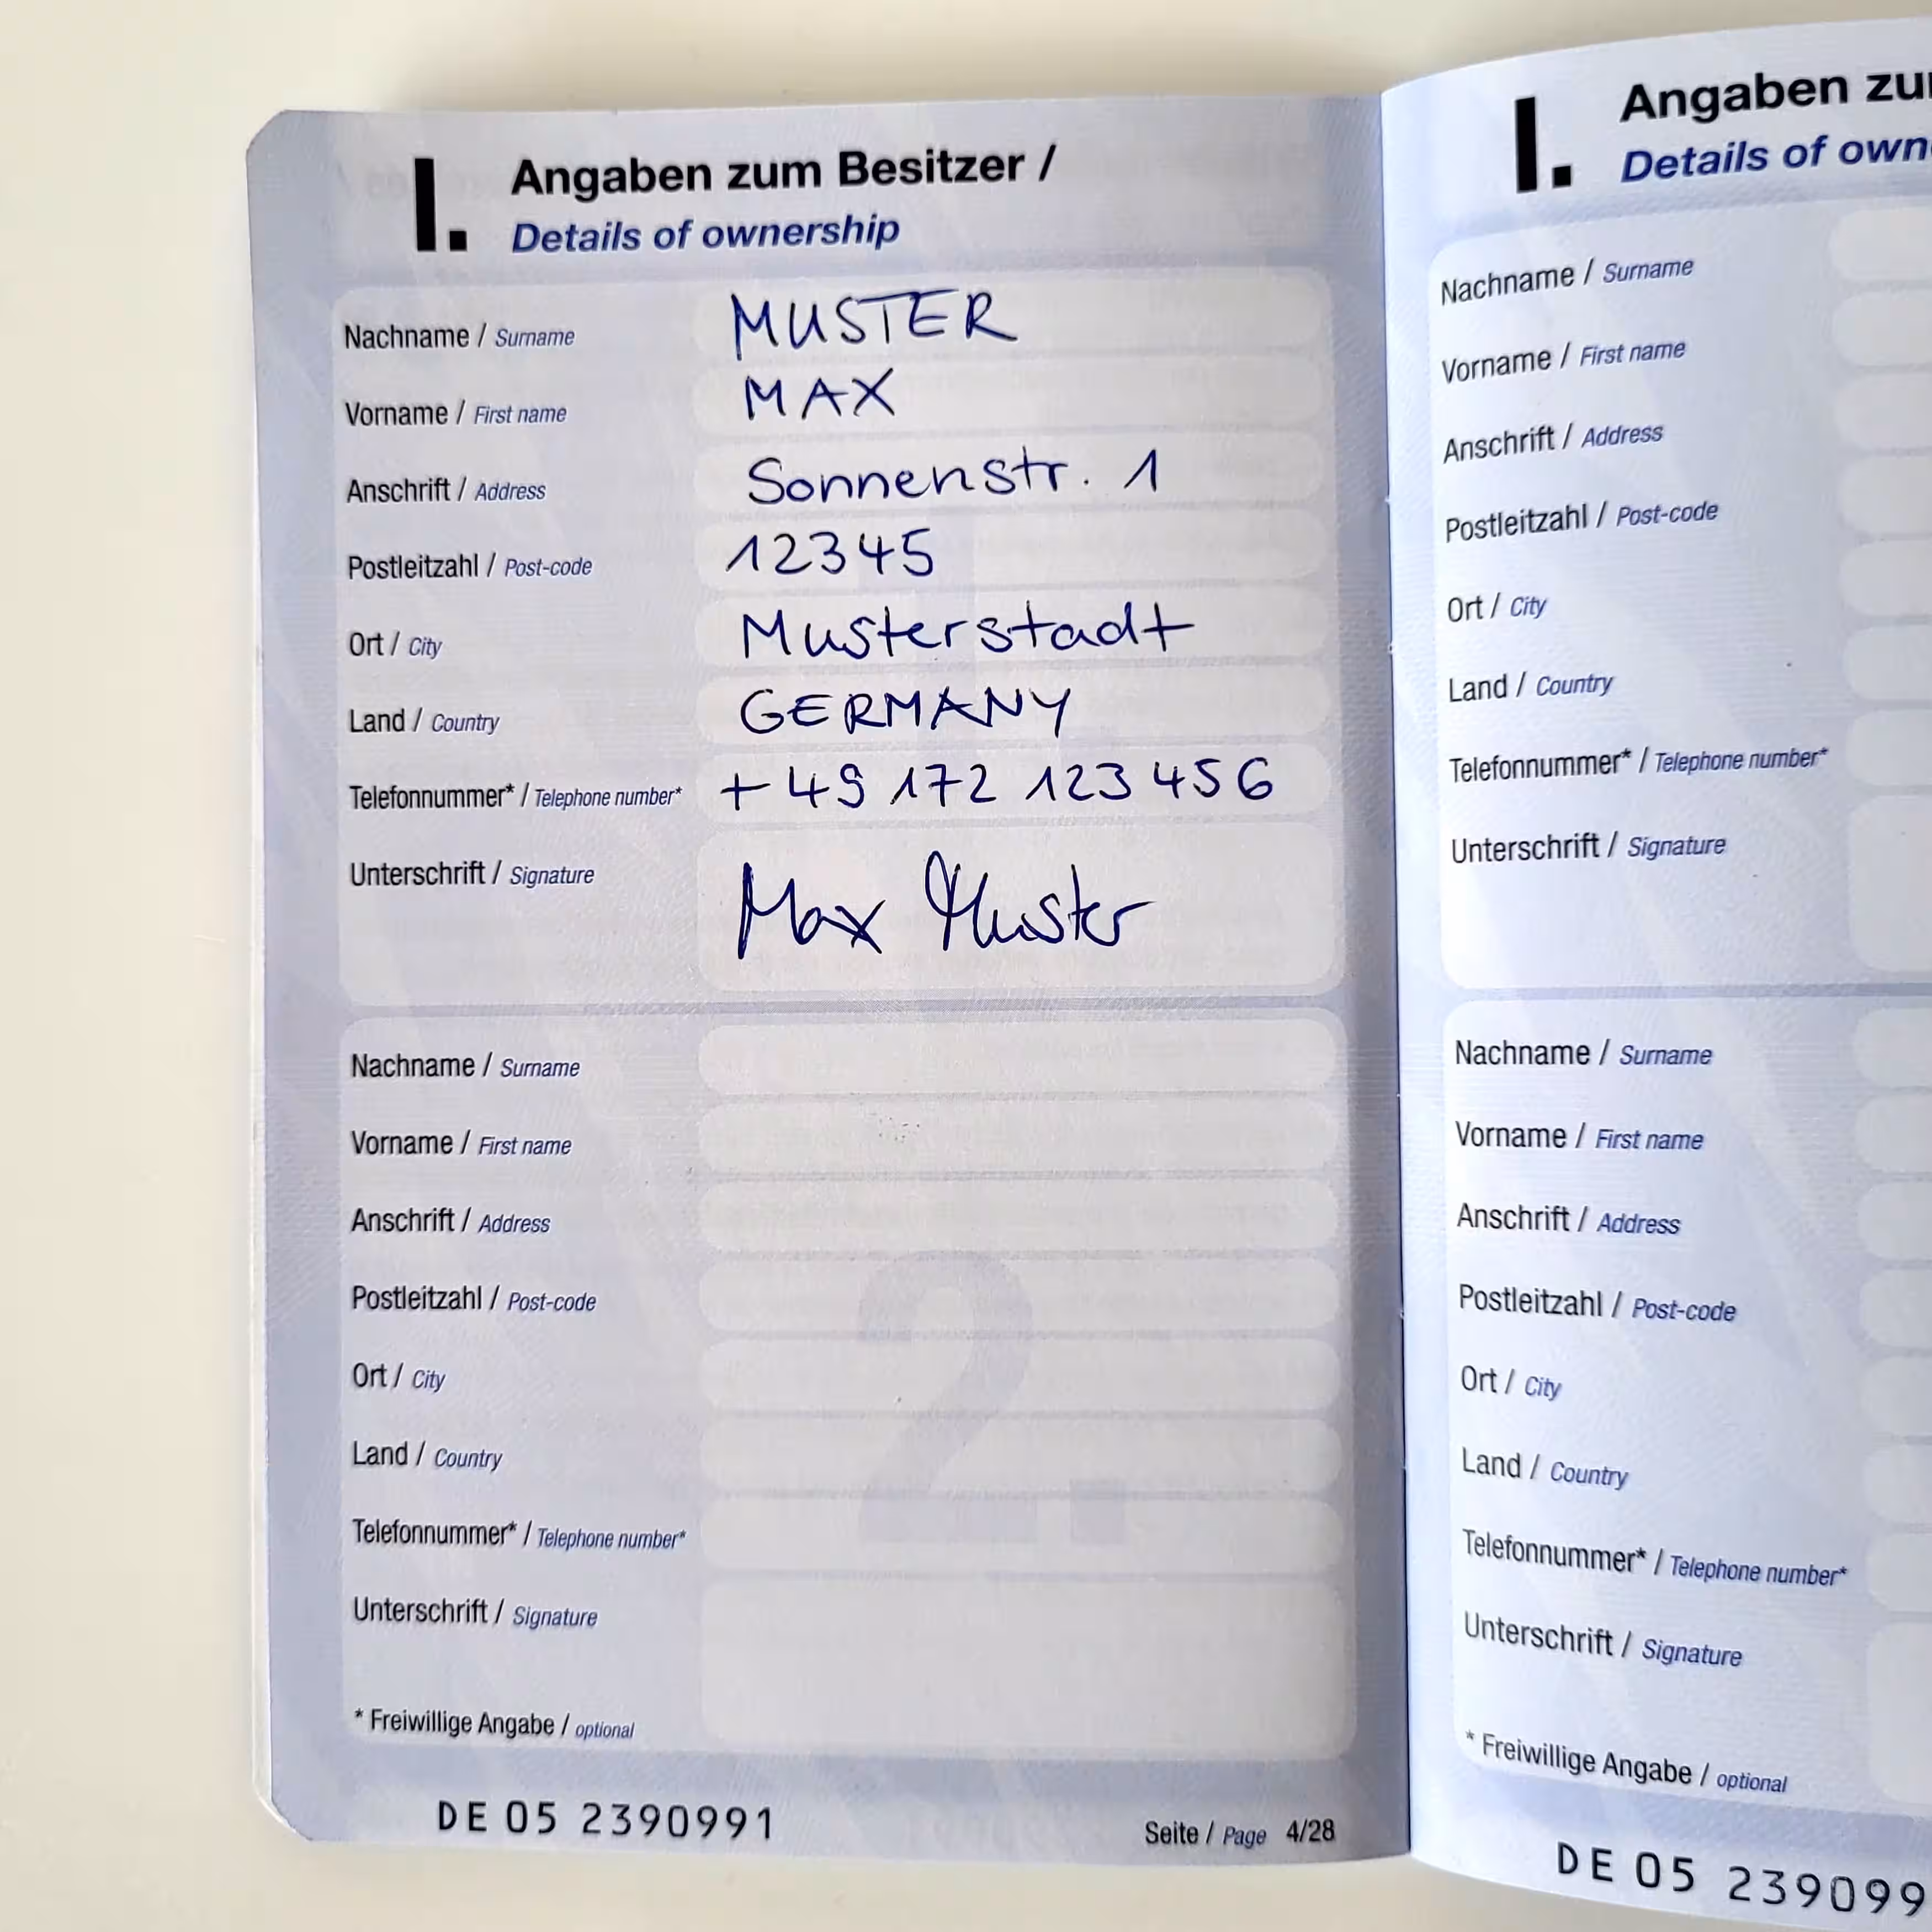 I. Angaben zum Besitzer /
Details of ownership
Nachname / Surname MUSTER
Vorname / First name MAX
Anschrift / Address Sonnenstr. 1
Postleitzahl / Post-code 12345
Ort / City Musterstadt
Land / Country GERMANY
Telefonnummer* / Telephone number* +49 172 123 456
Unterschrift / Signature Max Muster
2.
Nachname / Surname
Vorname / First name
Anschrift / Address
Postleitzahl / Post-code
Ort / City
Land / Country
Telefonnummer* / Telephone number*
Unterschrift / Signature
* Freiwillige Angabe / optional
DE 05 2390991 Seite / Page 4/28
I. Angaben
Details of
Nachname / Surname
Vorname / First name
Anschrift / Address
Postleitzahl / Post-code
Ort / City
Land / Country
Telefonnummer* / Telephone number*
Unterschrift / Signature
Nachname / Surname
Vorname / First name
Anschrift / Address
Postleitzahl / Post-code
Ort / City
Land / Country
Telefonnummer* / Telephone number*
Unterschrift / Signature
* Freiwillige Angabe / optional
DE 05 239099